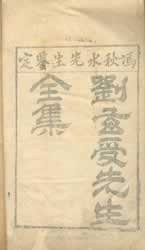 馮秋水先生鑒定
劉孟受先生
全集